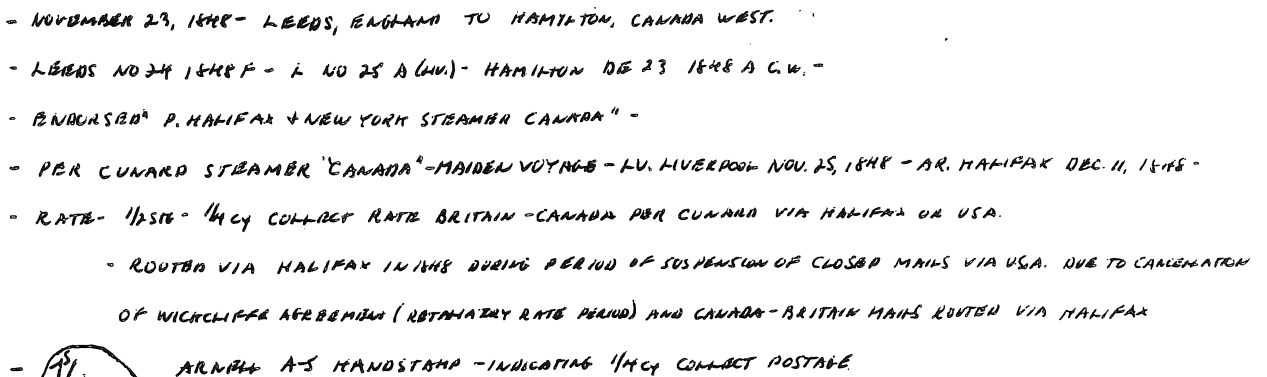 - NOVEMBER 23, 1848 - LEEDS, ENGLAND TO HAMILTON, CANADA WEST.
- LEEDS NO 24 1848 F - L NO 25 A (LIV.) - HAMILTON DE 23 1848 A C.W. -
- ENDORSED "P. HALIFAX & NEW YORK STEAMER CANADA" -
- PER CUNARD STEAMER "CANADA" - MAIDEN VOYAGE - LV. LIVERPOOL NOV. 25, 1848 - AR. HALIFAX DEC. 11, 1848 -
- RATE - 1/2 STG - 1/4 CY COLLECT RATE BRITAIN - CANADA PER CUNARD VIA HALIFAX OR USA.
- ROUTED VIA HALIFAX IN 1848 DURING PERIOD OF SUSPENSION OF CLOSED MAILS VIA USA. DUE TO CANCELLATION
OF WICKCLIFFE AGREEMENT (RETALIATORY RATE PERIOD) AND CANADA - BRITAIN MAILS ROUTED VIA HALIFAX
- ARNELL A-5 HANDSTAMP - INDICATING 1/4 CY COLLECT POSTAGE